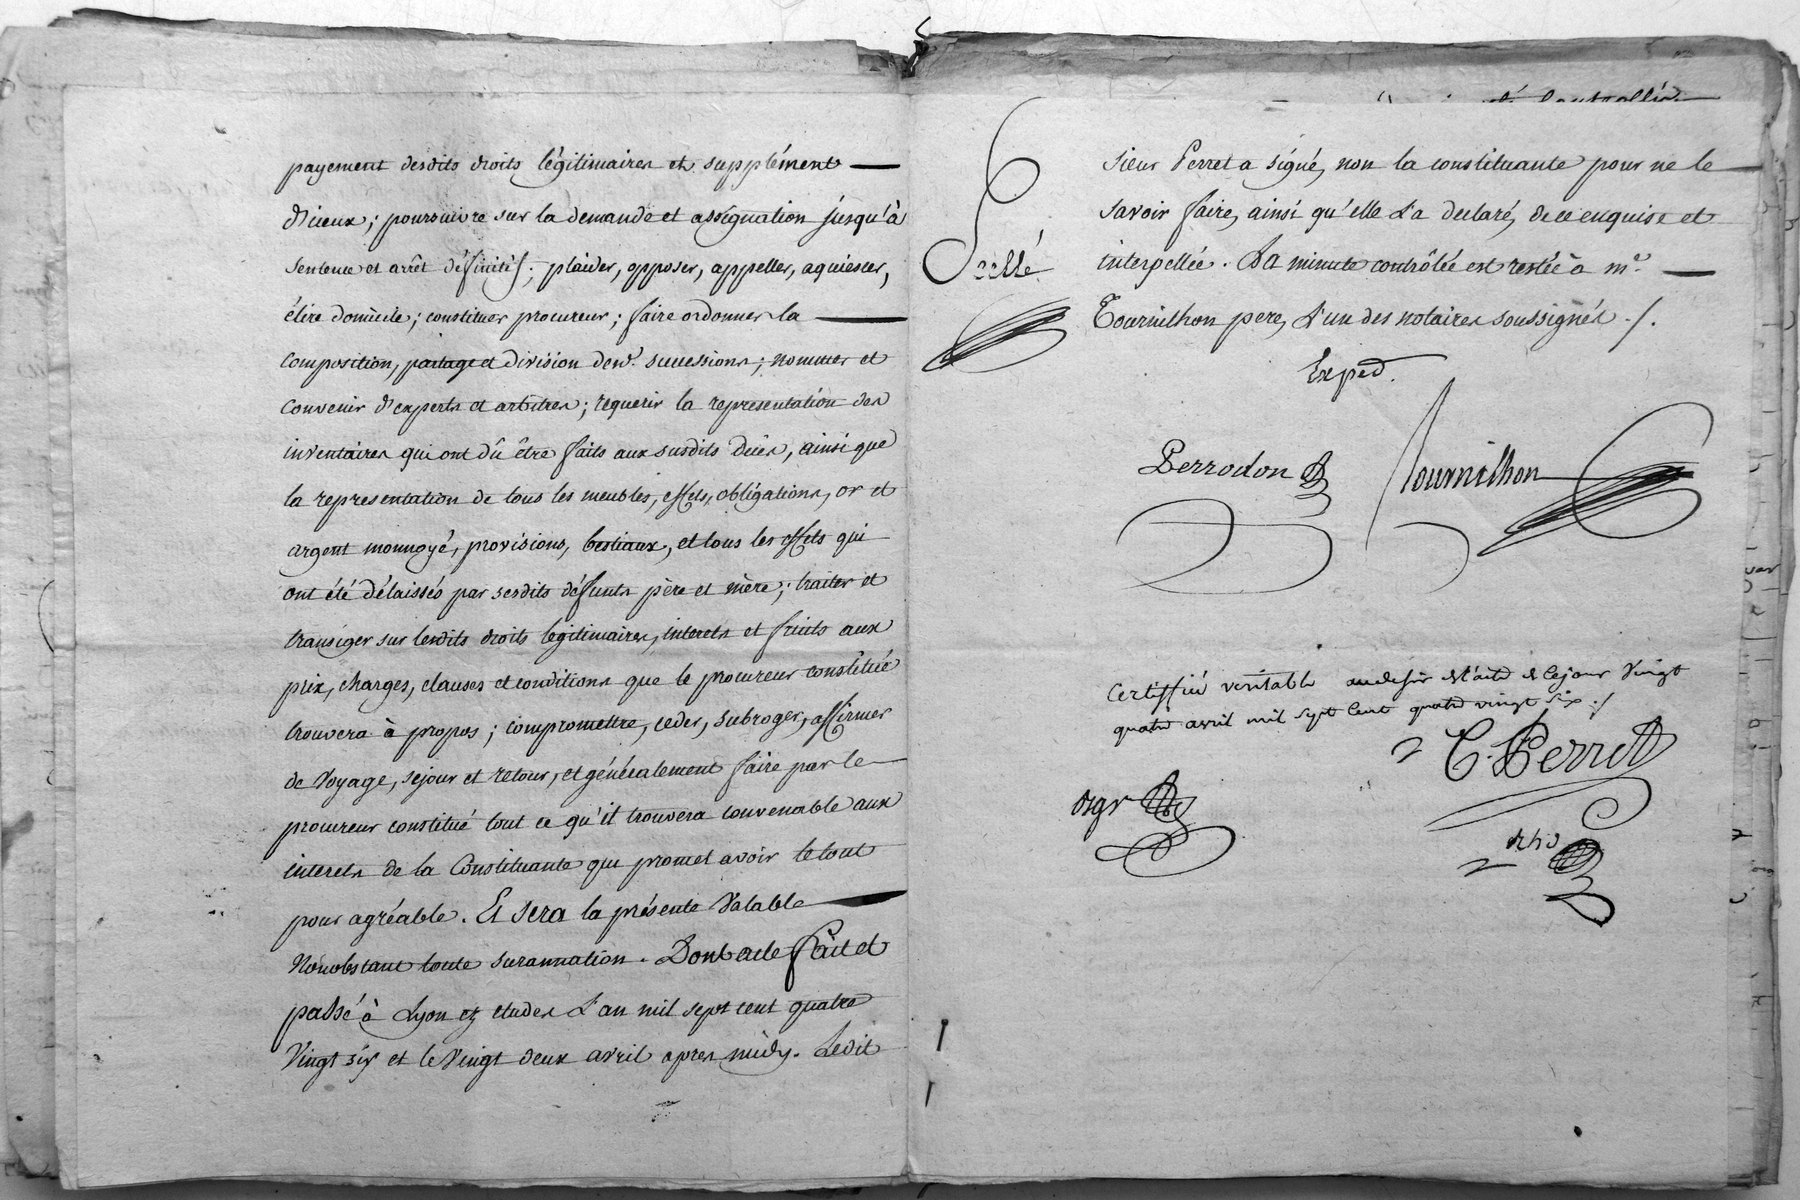 payement desdits droits légitimaires et supplément
d'iceux; poursuivre sur la demande et assignation jusqu'à
sentence et arrêt définitifs; plaider, opposer, appeller, aquiescer,
élire domicile; constituer procureur; faire ordonner la
composition, partage et division desd. successions; nommer et
convenir d'experts et arbitres; requerir la representation des
inventaires qui ont dû être faits aux susdits décès, ainsi que
la representation de tous les meubles, effets, obligations, or et
argent monnoyé, provisions, bestiaux, et tous les effets qui
ont été délaissés par sesdits défunts père et mère; traiter et
transiger sur lesdits droits légitimaires, interets et fruits aux
prix, charges, clauses et conditions que le procureur constitué
trouvera à propos; compromettre, ceder, subroger, affirmer
de Voyage, sejour et retour, et généralement faire par le
procureur constitué tout ce qu'il trouvera convenable aux
interets de la Constituante qui promet avoir le tout
pour agréable. Et sera la présente Valable
Nonobstant toute surannation. Dont acte fait et
passé à Lyon ez etudes L'an mil sept cent quatre
Vingt six et le Vingt deux avril apres midy. Ledit
sieur Perret a signé, non la constituante pour ne le
savoir faire, ainsi qu'elle L'a declaré, de ce enquise et
interpellée. La minute contrôlée est restée à me.
Tournilhon pere, L'un des notaires soussignés ./.
Scellé
Exped.
Perrodon Tournilhon
Certiffié veritable au desir de l'acte de ce jour Vingt
quatre avril mil sept cent quatre vingt six ./
C. Perret